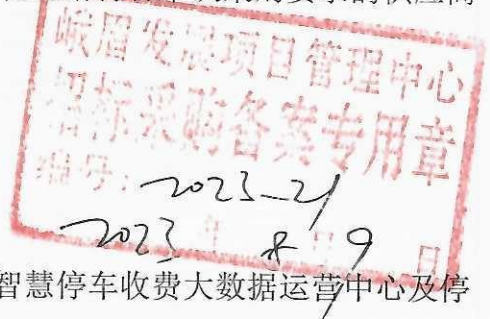 要求的供应商
峨眉发展项目管理中心
招标采购备案专用章
编号：2023-21
2023年8月9日
智慧停车收费大数据运营中心及停